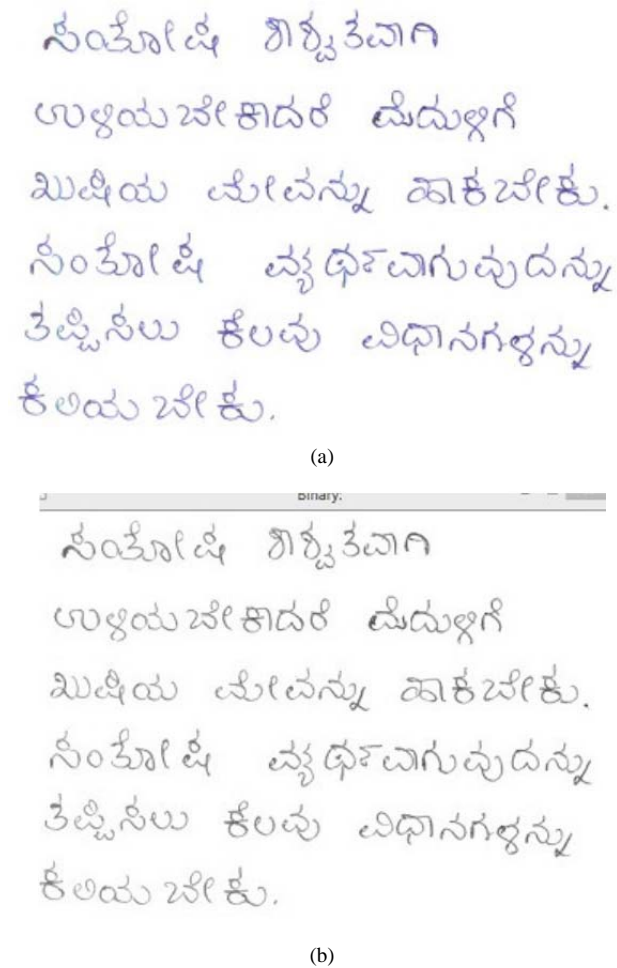 ಸಂತೋಷ ಶಾಶ್ವತವಾಗಿ
ಉಳಿಯಬೇಕಾದರೆ ಮೆದುಳ್ಳಿಗೆ
ಖುಷಿಯ ಮೇವನ್ನು ಹಾಕಬೇಕು.
ಸಂತೋಷ ವ್ಯರ್ಥವಾಗುವುದನ್ನು
ತಪ್ಪಿಸಲು ಕೆಲವು ವಿಧಾನಗಳನ್ನು
ಕಲಿಯಬೇಕು.
(a)
Binary:
ಸಂತೋಷ ಶಾಶ್ವತವಾಗಿ
ಉಳಿಯಬೇಕಾದರೆ ಮೆದುಳ್ಳಿಗೆ
ಖುಷಿಯ ಮೇವನ್ನು ಹಾಕಬೇಕು.
ಸಂತೋಷ ವ್ಯರ್ಥವಾಗುವುದನ್ನು
ತಪ್ಪಿಸಲು ಕೆಲವು ವಿಧಾನಗಳನ್ನು
ಕಲಿಯಬೇಕು.
(b)